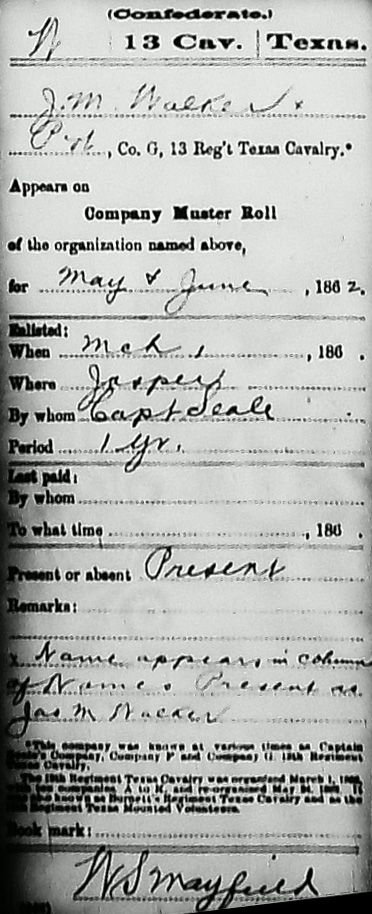 (Confederate.)
W | 13 Cav. | Texas.
J. M. Walker x
Pvt, Co. G, 13 Reg't Texas Cavalry.*
Appears on
Company Muster Roll
of the organization named above,
for May & June, 1862.
Enlisted:
When Mch 1, 186 .
Where Jasper
By whom Capt Seale
Period 1 yr.
Last paid:
By whom
To what time , 186 .
Present or absent Present
Remarks:
x Name appears in column
of Names Present as
Jas M Walker
*This company was known at various times as Captain
Company, Company F and Company G, 13th Regiment
Cavalry.
The 13th Regiment Texas Cavalry was organized March 1, 1862,
with ten companies, A to K, and re-organized May 24, 1862. It
was also known as Burnett's Regiment Texas Cavalry and as the
13th Regiment Texas Mounted Volunteers.
Book mark:
W S Mayfield